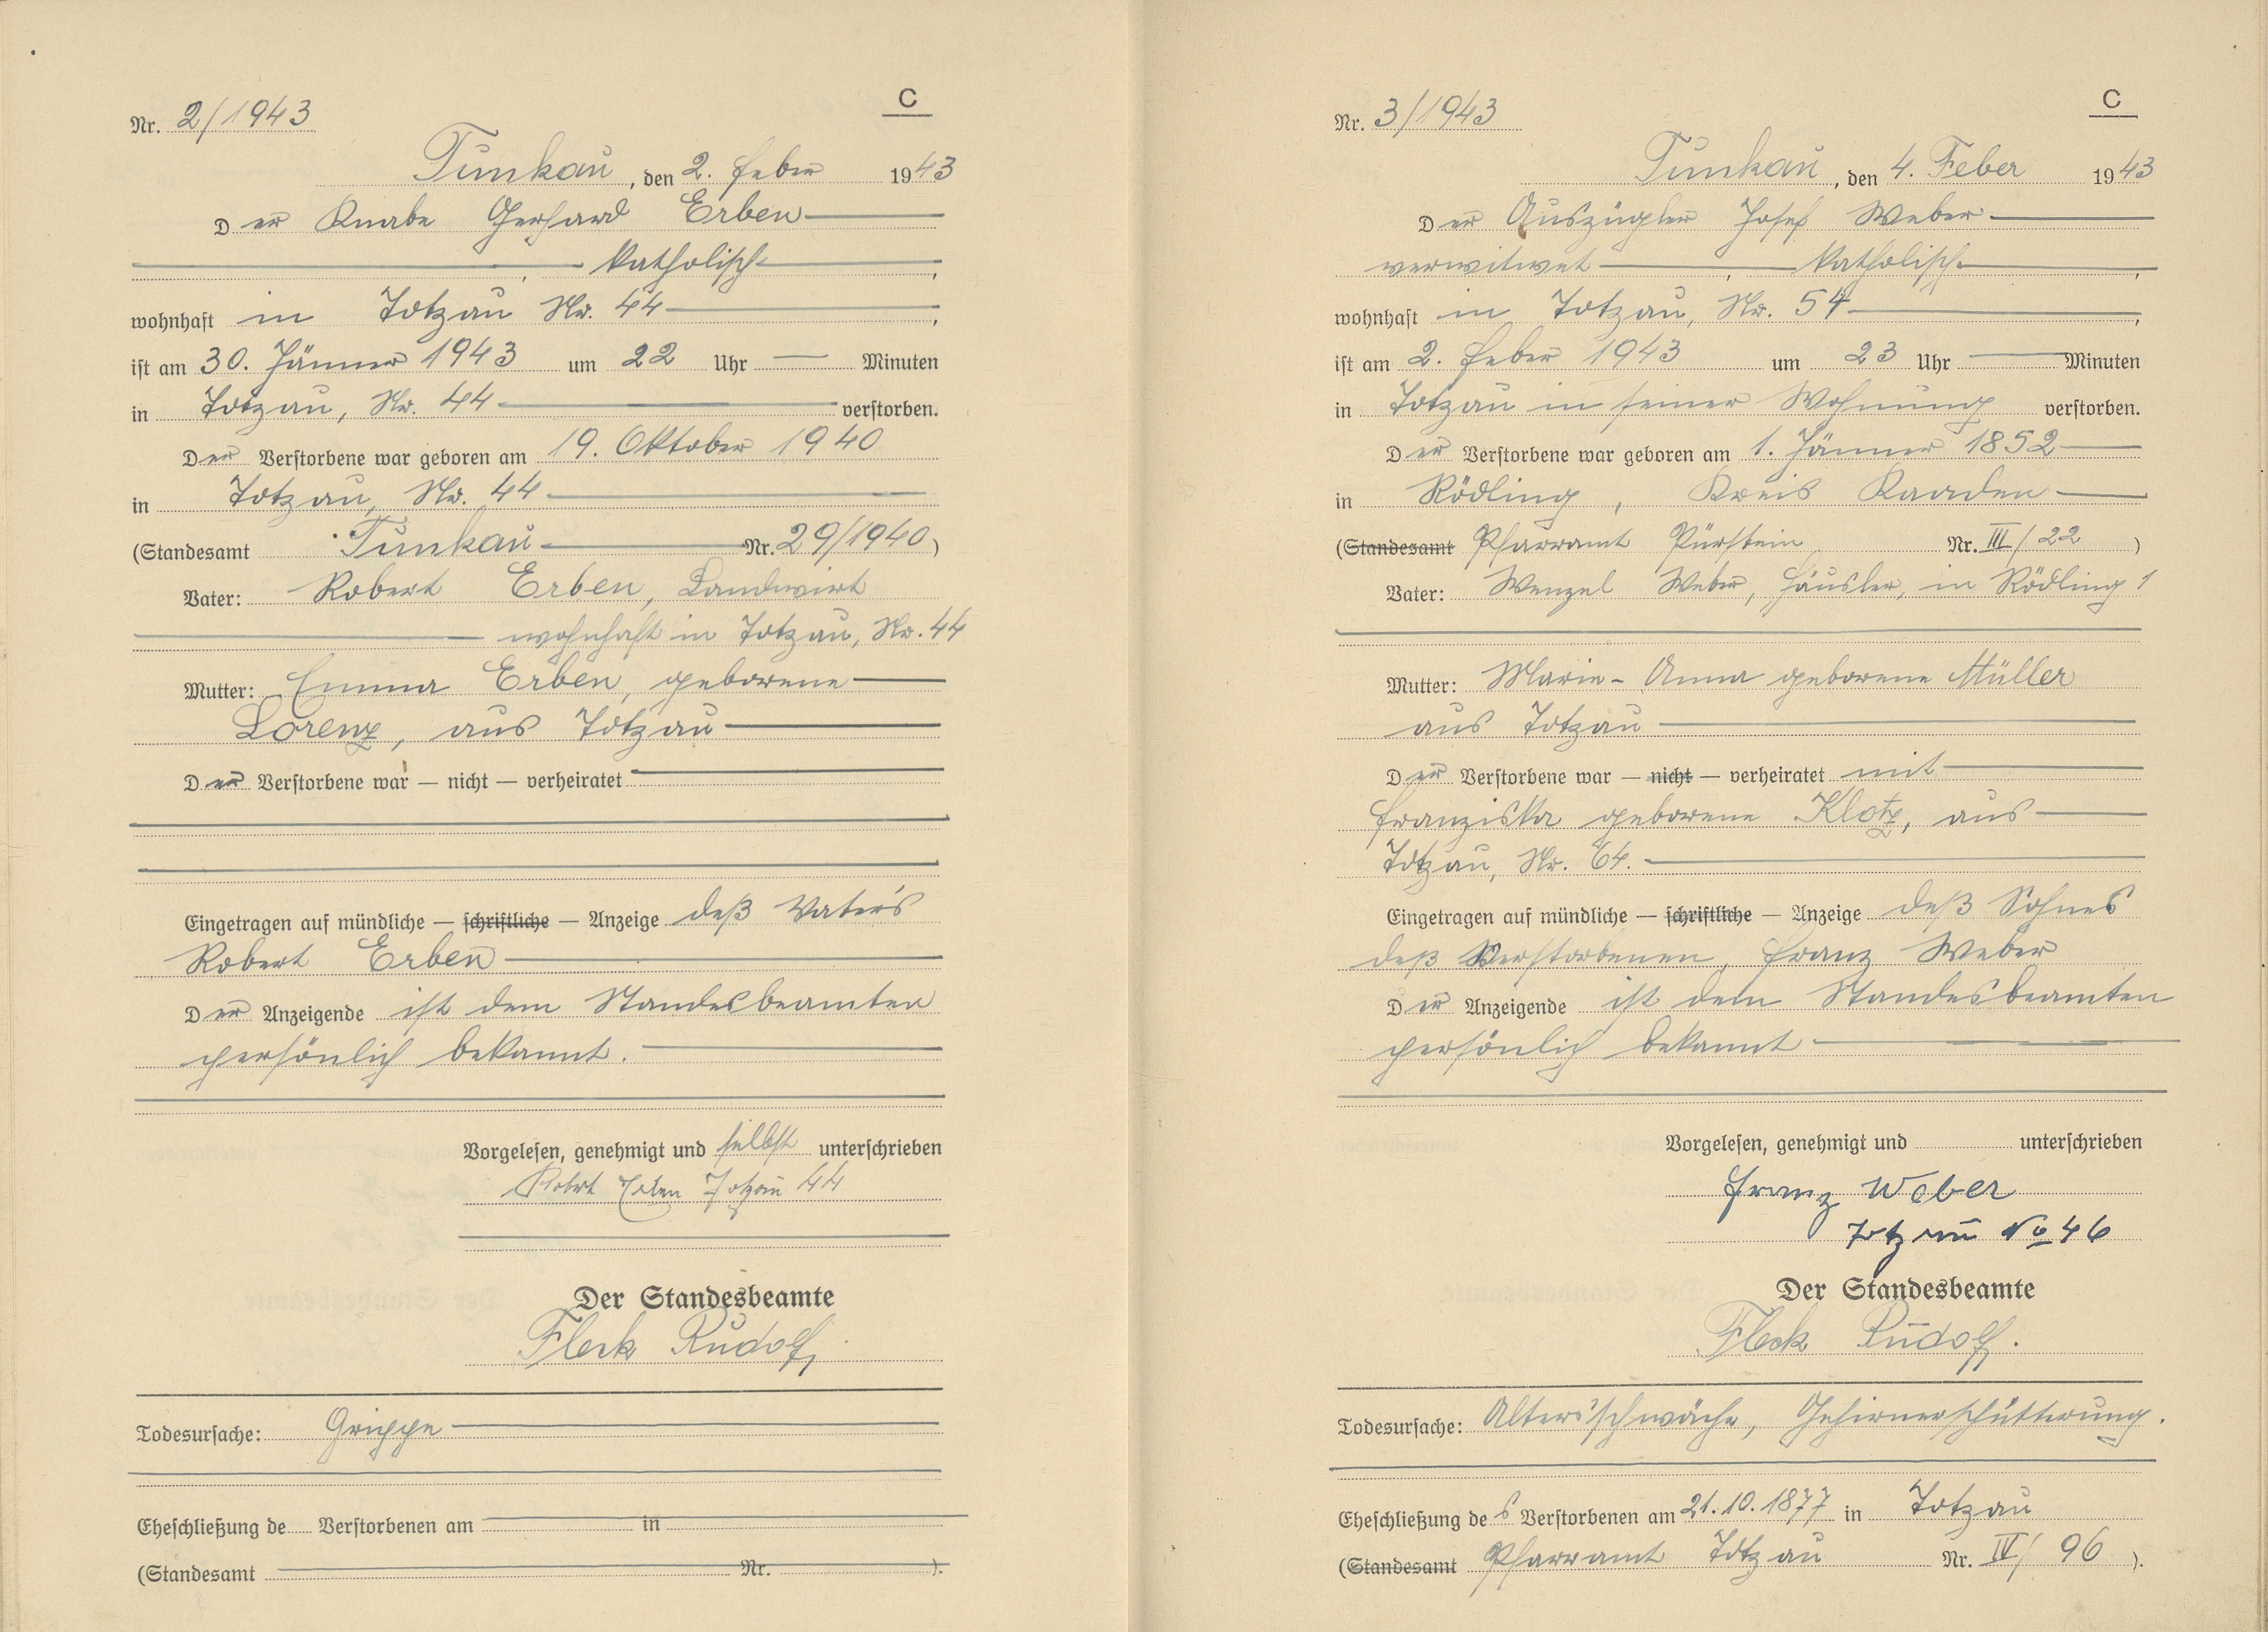 C
Nr. 2/1943
Tunkau, den 2. Feber 1943
Der Knabe Gerhard Erben
katholisch,
wohnhaft in Totzau Nr. 44,
ist am 30. Jänner 1943 um 22 Uhr — Minuten
in Totzau, Nr. 44 verstorben.
Der Verstorbene war geboren am 19. Oktober 1940
in Totzau, Nr. 44
(Standesamt Tunkau Nr. 29/1940)
Vater: Robert Erben, Landwirt
wohnhaft in Totzau, Nr. 44
Mutter: Emma Erben, geborene
Lorenz, aus Totzau
Der Verstorbene war — nicht — verheiratet
Eingetragen auf mündliche — schriftliche — Anzeige deß Vaters
Robert Erben
Der Anzeigende ist dem Standesbeamten
persönlich bekannt.
Vorgelesen, genehmigt und selbst unterschrieben
Robert Erben Totzau 44
Der Standesbeamte
Fleck Rudolf
Todesursache: Grippe
Eheschließung de Verstorbenen am in
(Standesamt Nr. ).
C
Nr. 3/1943
Tunkau, den 4. Feber 1943
Der Auszügler Josef Weber
verwitwet, katholisch,
wohnhaft in Totzau, Nr. 54,
ist am 2. Feber 1943 um 23 Uhr — Minuten
in Totzau in seiner Wohnung verstorben.
Der Verstorbene war geboren am 1. Jänner 1852
in Rödling, Kreis Kaaden
(Standesamt Pfarramt Pürstein Nr. III/22)
Vater: Wenzel Weber, Häusler, in Rödling 1
Mutter: Marie-Anna geborene Müller
aus Totzau
Der Verstorbene war — nicht — verheiratet mit
Franziska geborene Klotz, aus
Totzau, Nr. 64.
Eingetragen auf mündliche — schriftliche — Anzeige deß Sohnes
deß Verstorbenen, Franz Weber
Der Anzeigende ist dem Standesbeamten
persönlich bekannt
Vorgelesen, genehmigt und unterschrieben
Franz Weber
Totzau No 46
Der Standesbeamte
Fleck Rudolf.
Todesursache: Altersschwäche, Gehirnerschütterung.
Eheschließung des Verstorbenen am 21.10.1877 in Totzau
(Standesamt Pfarramt Totzau Nr. IV/96).